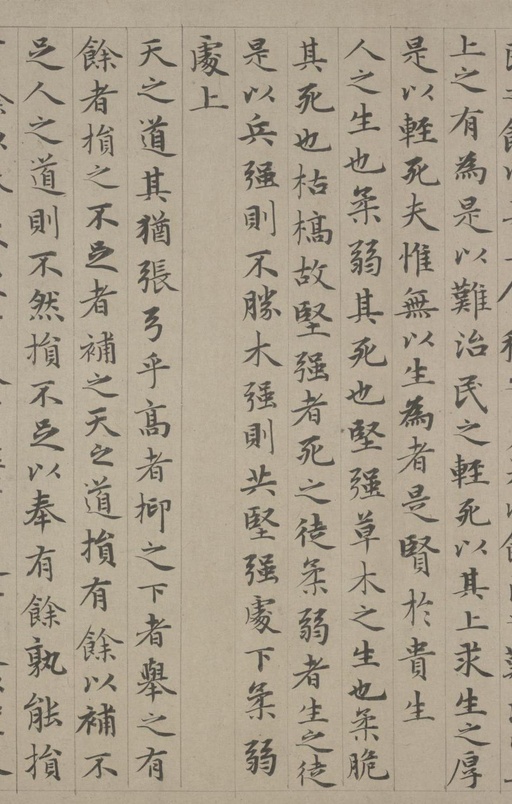 上之有為是以難治民之輕死以其上求生之厚
是以輕死夫惟無以生為者是賢於貴生
人之生也柔弱其死也堅強草木之生也柔脆
其死也枯槁故堅强者死之徒柔弱者生之徒
是以兵强則不勝木强則共堅强處下柔弱
處上
天之道其猶張弓乎高者抑之下者舉之有
餘者損之不足者補之天之道損有餘以補不
足人之道則不然損不足以奉有餘孰能損